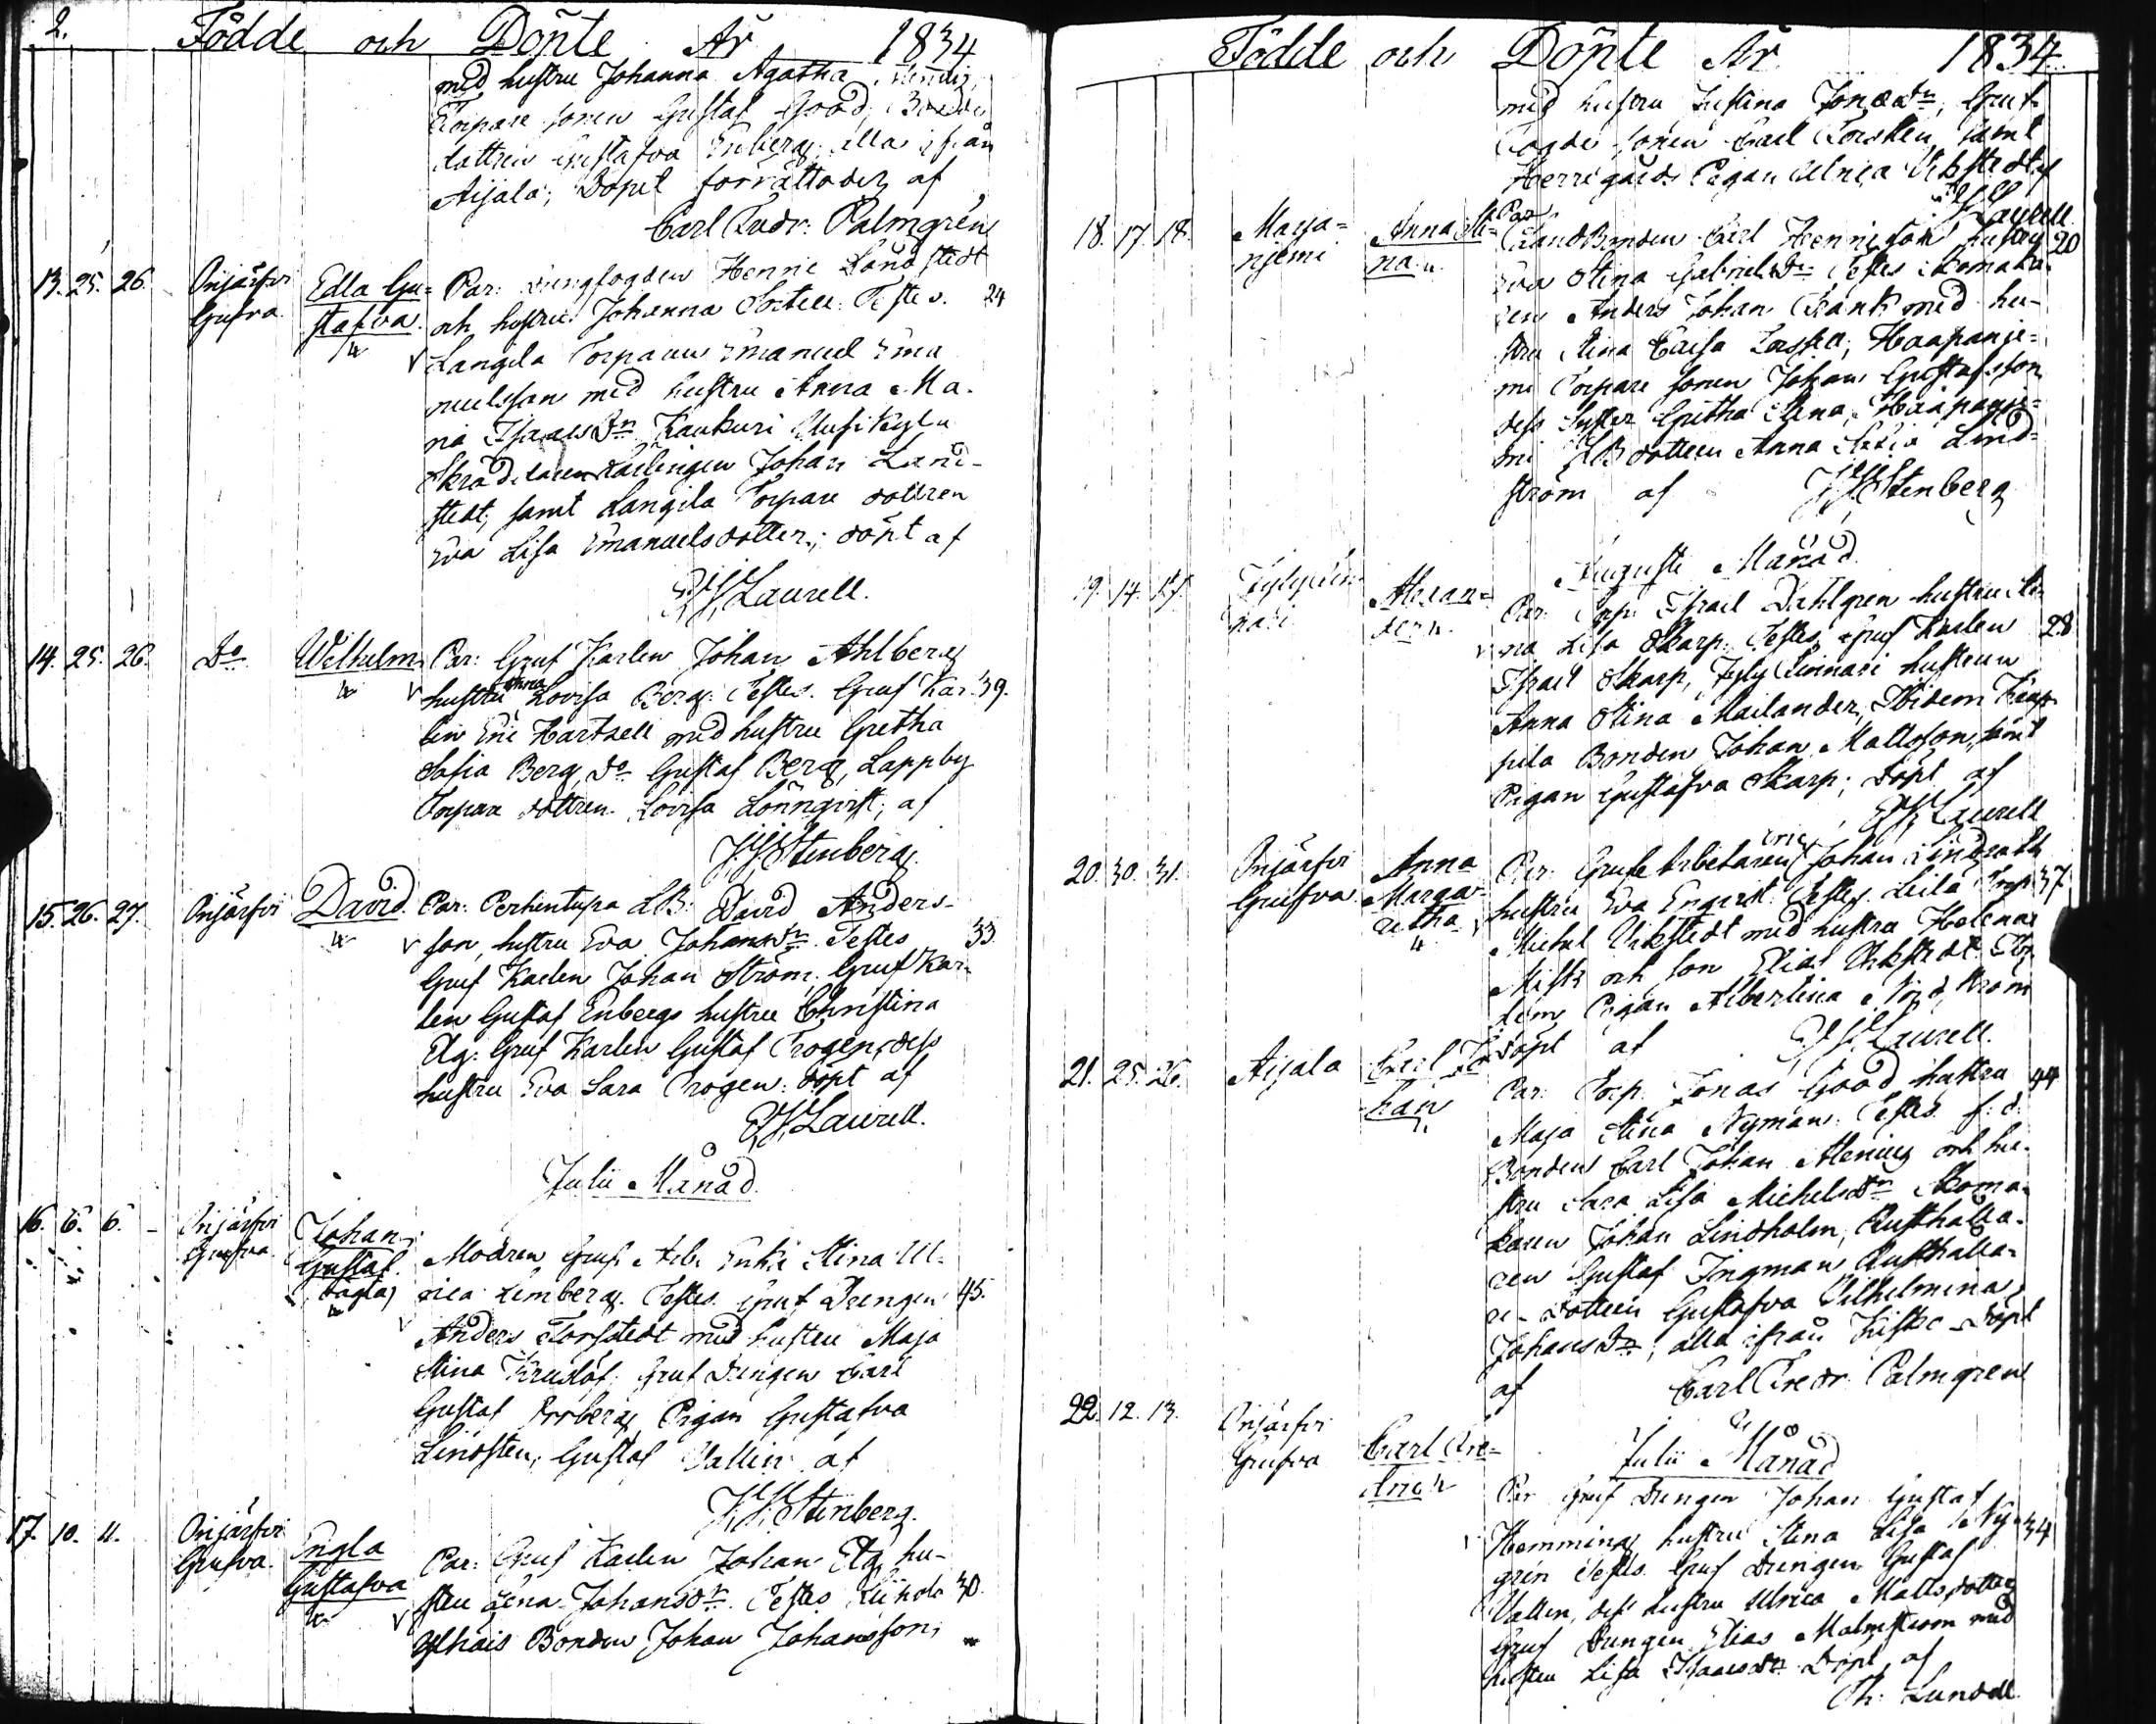 2.
Födde och Döpte År 1834
med hustru Johanna Agatha
Torpare sonen Gustaf Good, Bonde
dottren Gustafva Enberg, alla ifrån
Aijala; Dopet förrättades af
Carl Fredr: Palmgren
13. 25. 26. Orijärfvi Grufva Edla Gustafva Par: Grufogden Henric Landstedt
och hustru Johanna Testes. 24
Langila Torparen Emanuel Ema
nuelsson med hustru Anna Ma-
ria Isaacsdn Kaukuri Uusikylä
Skräddaren Johan Land-
stedt, samt Langila Torpare dottren
Eva Lisa Emanuelsdotter; döpt af
Laurell.
14. 25. 26. Do Wilhelm Par: Gruf Karlen Johan Ahlberg
hustru Anna Lovisa Berg. Testes. Gruf Kar- 39.
len Eric Hartzell med hustru Gretha
Sofia Berg, do Gustaf Berg, Lappby
Torpare dottren Lovisa Lönnqvist; af
Stenberg.
15. 26. 27. Orijärfvi David Par: Perheentupa LB: David Anders-
son, hustru Eva Johansdn Testes 33
Gruf Karlen Johan Ström, Gruf Kar-
len Gustaf Enbergs hustru Christina
Elg. Gruf Karlen Gustaf Trogen, dess
hustru Eva Sara Trogen. döpt af
Laurell.
Julii Månad
16. 6. 6. Orijärfvi Grufva Johan Gustaf oägta Modren Gruf Arb. Enka Stina Ul-
rica Lemberg. Testes Gruf Drengen 45.
Anders Torstedt med hustru Maja
Stina Gruf Drengen Carl
Gustaf Forsberg Pigan Gustafva
Lindsten, Gustaf Vallin af
Stenberg.
17. 10. 11. Orijärfvi Grufva Engla Gustafva Par: Gruf Karlen Johan Elg, hu-
stru Lena Johansdr. Testes 30.
Ylhäis Bonden Johan Johansson,
Födde och Döpte År 1834
med hustru Justina Jonasdn, Gruf
Fogde sonen Carl Forstén, samt
Herregårds Pigan Ulrica Vikstedt af
Laurell
18. 17. 18. Marjaniemi Anna Stina Par: Landbonden Carl Henricson hustru 20
Eva Stina Gabrielsdr Testes Skomaka-
ren Anders Johan Frank med hu-
stru Stina Cajsa Haapanie-
mi Torpare sonen Johan Gustafsson
dess Syster Gretha Stina, Haapanie-
mi LB dottren Anna Sofia Lind-
ström af Stenberg
Augusti Månad
19. 14. 17. Alexandern Par: Torp. Israel Dahlgren hustru Sti-
na Lisa Skarp. Testes Gruf Karlen 28
Israel Skarp, hustrun
Anna Stina Mailander, Ibidem
Bonden Johan Mattsson, samt
Pigan Gustafva Skarp; döpt af
Laurell
20. 30. 31. Orijärfvi Grufva Anna Margaretha Par: Grufe Arbetaren Eric Johan
hustru Eva Engvist. Testes. Leilä Torp. 37
Michel Vikstedt med hustru Helena
och son Elias Vikstedt
Pigan Albertina Nordström
döpt af Laurell.
21. 25. 26. Aijala Carl Johan Par: Torp. Jonas Good hustru 44
Maja Stina Nyman. Testes f: d:
Bonden Carl Johan Alenius och hu-
stru Sara Lisa Michelsdn Skoma-
karen Johan Lindholm, Rusthålla-
ren Gustaf Ingman Rusthålla-
re-dottren Gustafva Vilhelmina
Johansdn, alla ifrån Kisko döpt
af Carl Fredr: Palmgren
Julii Månad
22. 12. 13. Orijärfvi Grufva Carl Fredrich Par Gruf Drengen Johan Gustaf
Hemming hustru Stina Lisa Ny- 34
grén Testes Gruf Drengen Gustaf
Vallin, dess hustru Ulrica Mattsdotter
Gruf Drengen Elias Malmström med
hustru Lisa Isaacsdn Döpt af
Th: Lundell